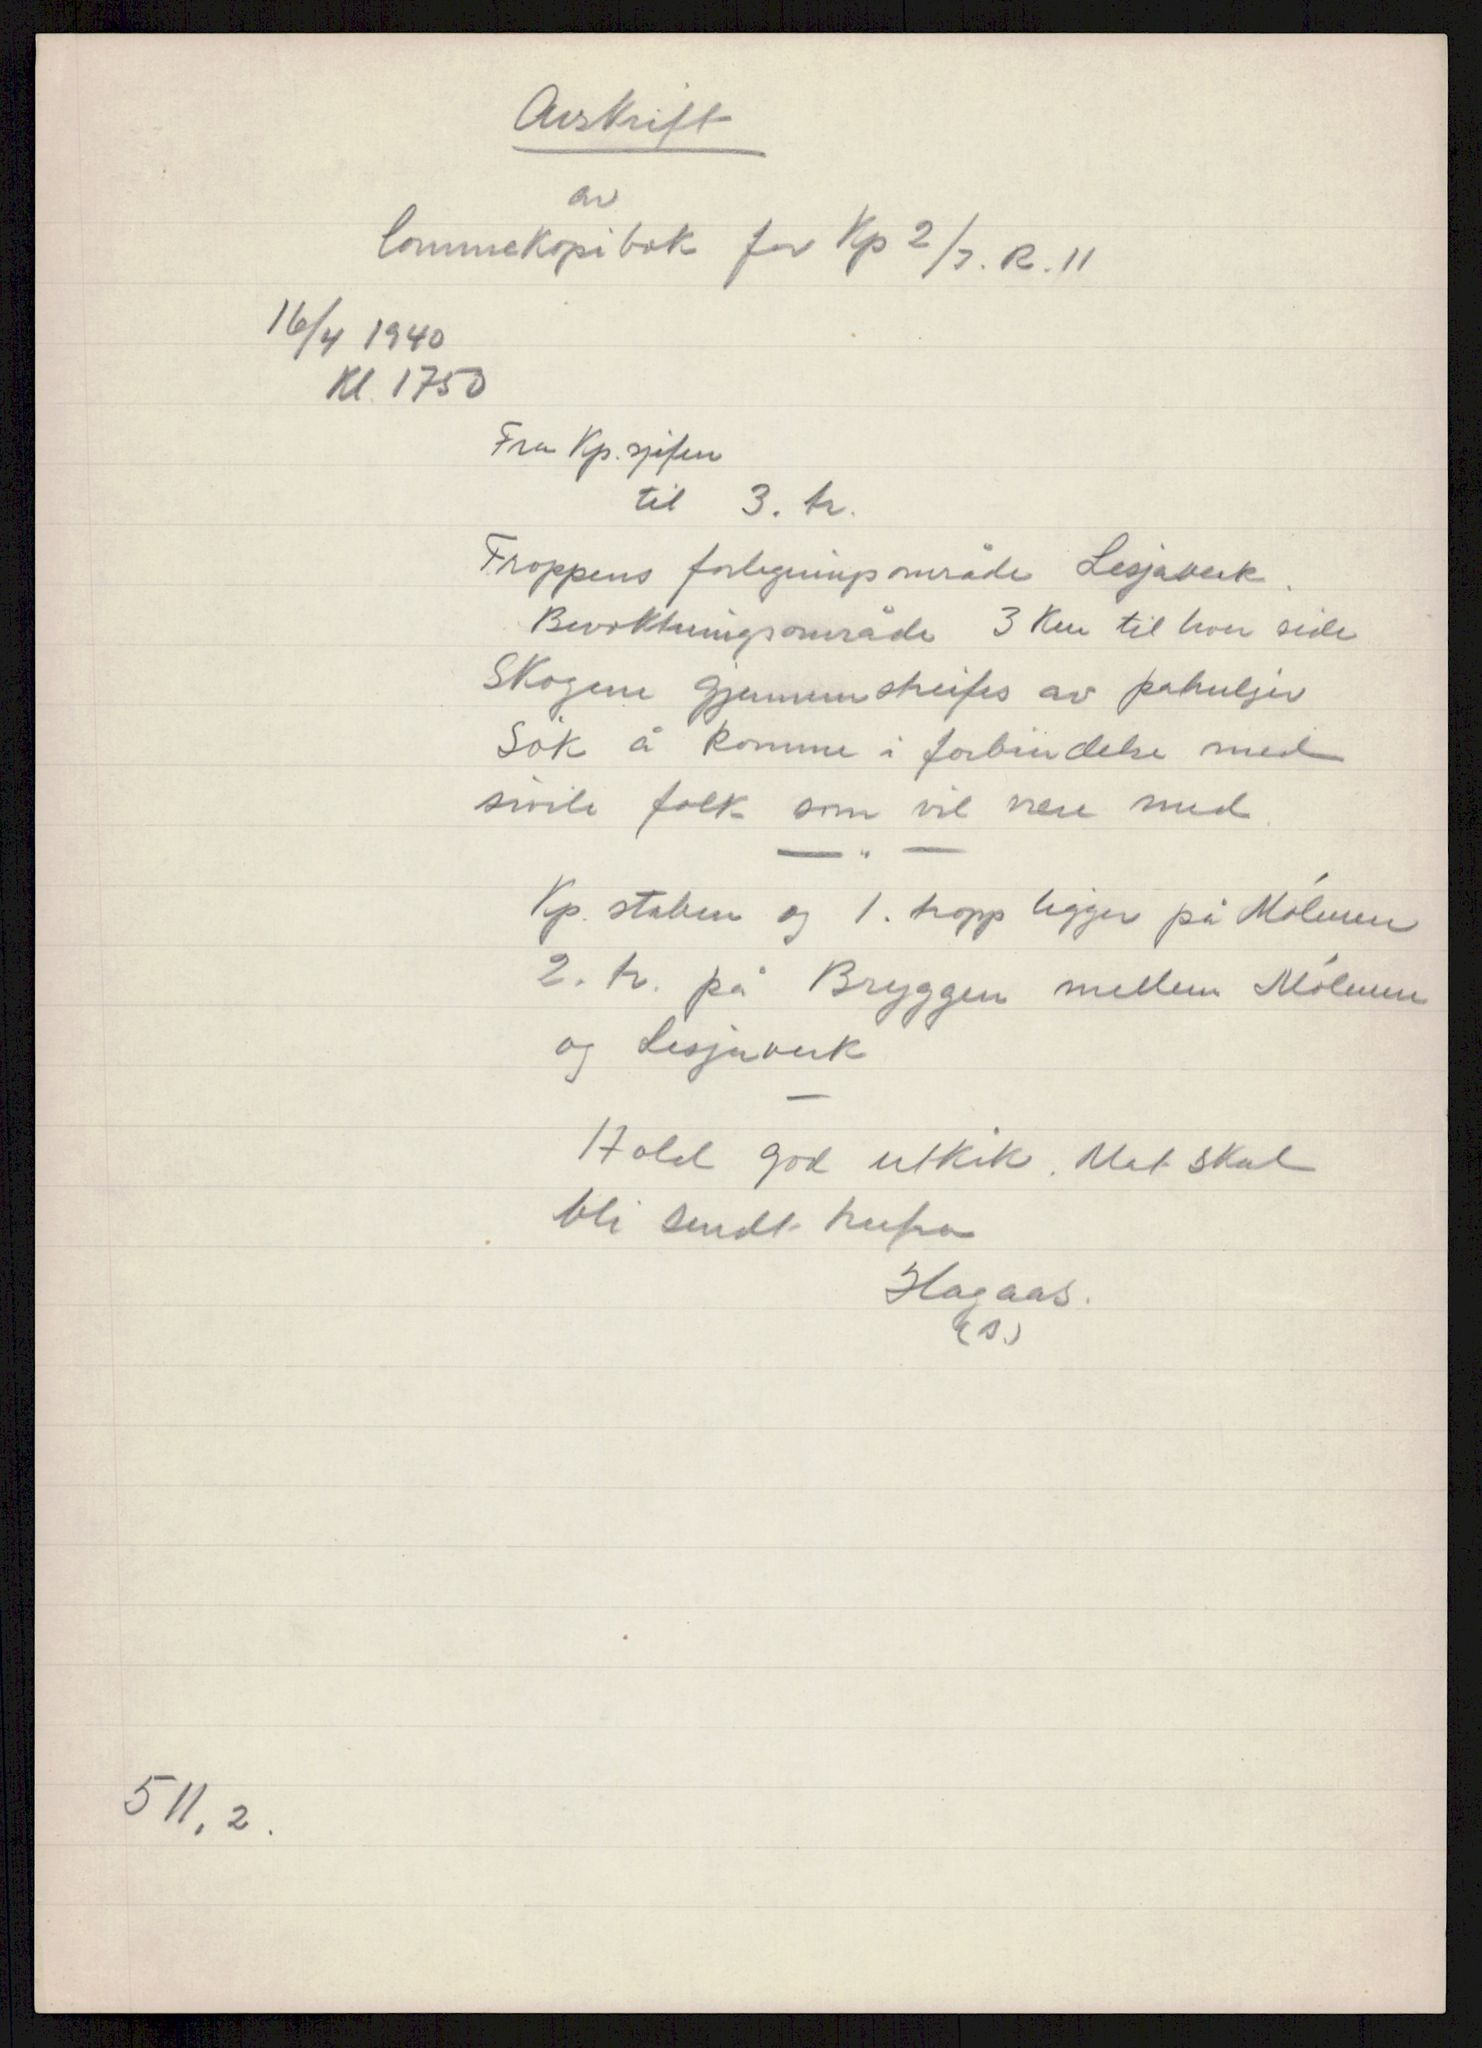 Avskrift
av
lommekopibok for Kp 2/I. R. 11
16/4 1940
Kl. 1750
Fra Kp. sjefen
til 3. tr.
Troppens forlegningsområde Lesjaverk.
Bevoktningsområde 3 Km til hver side
Skogene gjennemstreifes av patruljer
Søk å komme i forbindelse med
sivile folk som vil være med.
— " —
Kp. staben og 1. tropp ligger på Mølmen
2. tr. på Bryggen mellem Mølmen
og Lesjaverk
—
Hold god utkik. Mat skal
bli sendt herfra
Hagaas.
(s.)
511.2.